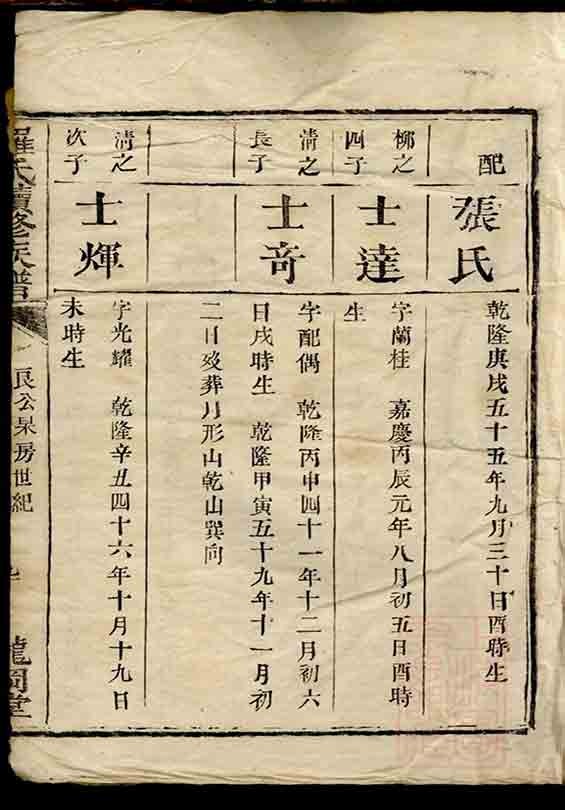 配
張氏
乾隆庚戌五十五年九月三十日酉時生
柳之
四子
士達
字蘭桂 嘉慶丙辰元年八月初五日酉時
生
清之
長子
士奇
字配偶 乾隆丙申四十一年十二月初六
日戌時生 乾隆甲寅五十九年十一月初
二日歿葬月形山乾山巽向
清之
次子
士輝
字光耀 乾隆辛丑四十六年十月十九日
未時生
羅氏續修族譜
良公杲房世紀
龍岡堂